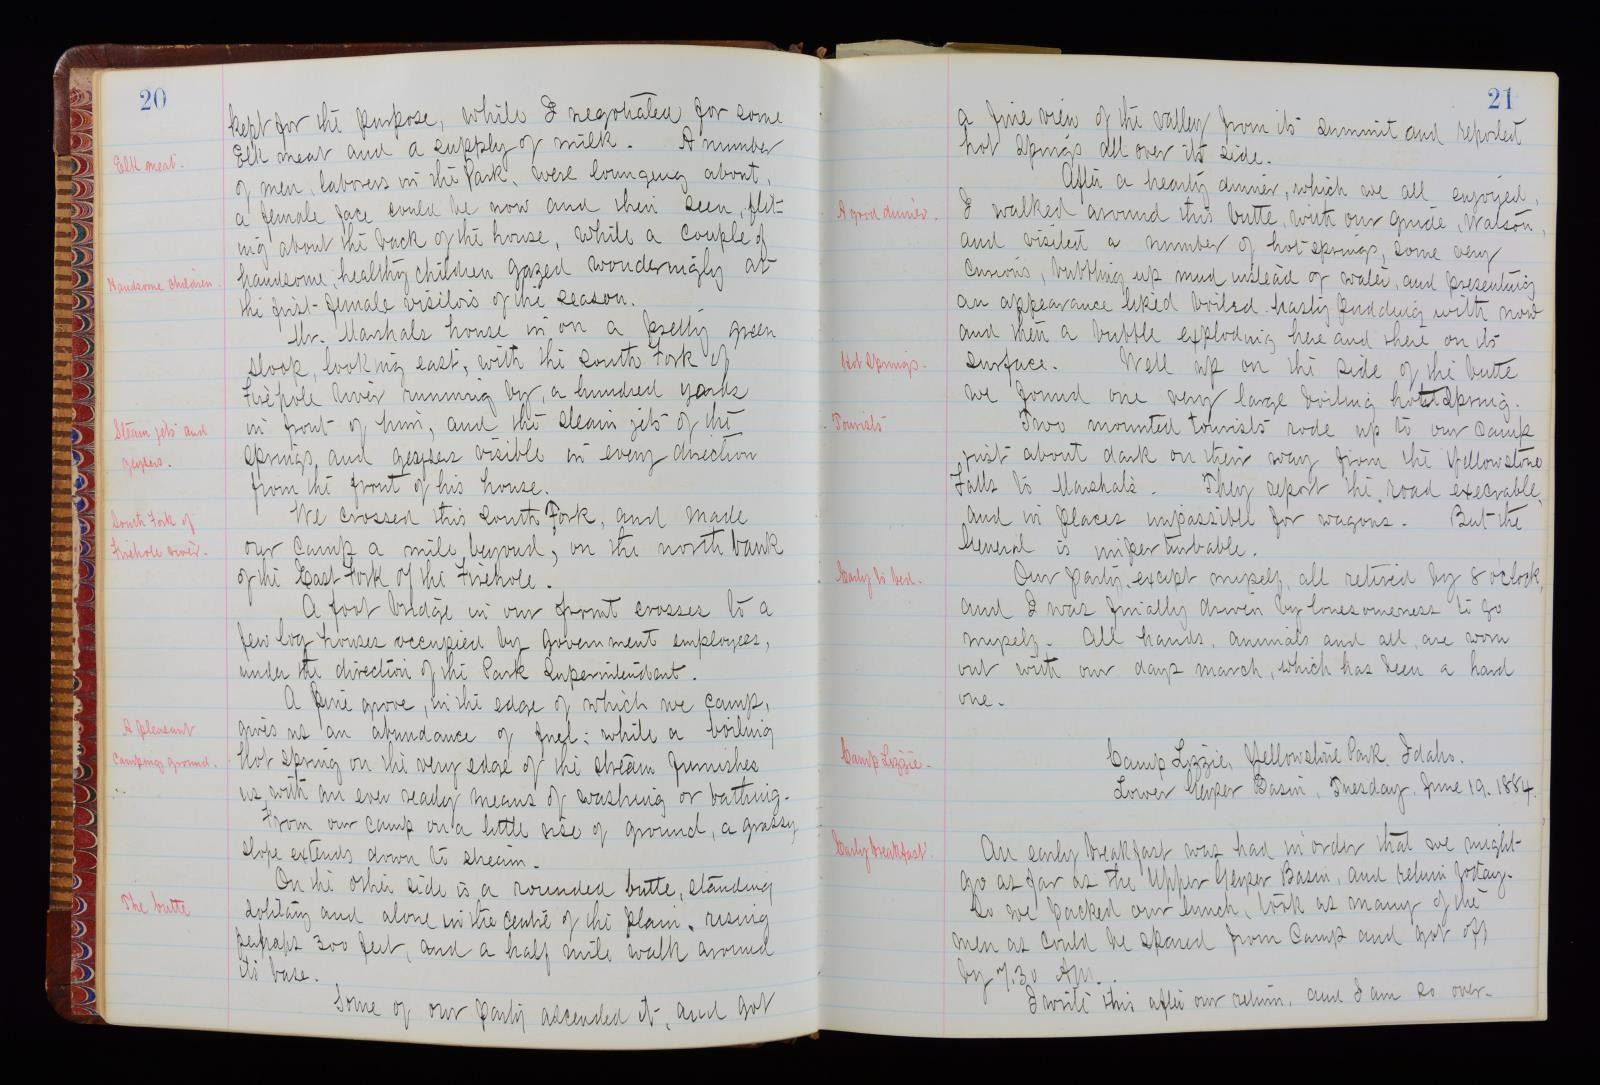 20
kept for the purpose, while I negotiated for some
Elk meat.
Elk meat and a supply of milk. A number
of men, laborers in the Park, were lounging about,
a female face could be now and then seen, flit-
ing about the back of the house, while a couple of
Handsome children.
handsome, healthy children gazed wonderingly at
the first female visitors of the season.
Mr. Marshals house is on a pretty green
slook, looking east, with the South Fork of
Firehole River running by, a hundred yards
Steam jets and
in front of him, and the steam jets of the
geysers.
springs and geysers visible in every direction
from the front of his house.
South Fork of
We crossed this South Fork, and made
Firehole river.
our camp a mile beyond, on the north bank
of the East Fork of the Firehole.
A foot bridge in our front crosses to a
few log houses occupied by government employees,
under the direction of the Park Superintendent.
A pine grove, in the edge of which we camp,
A pleasant
gives us an abundance of fuel: while a boiling
camping ground.
hot spring on the very edge of the stream furnishes
us with an ever ready means of washing or bathing.
From our camp on a little rise of ground, a grassy
slope extends down to stream.
On the other side is a rounded butte, standing
The butte
solitary and alone in the centre of the plain, rising
perhaps 300 feet, and a half mile walk around
its base.
Some of our party ascended it, and got
21
a fine view of the valley from its summit and reported
hot springs all over its side.
After a hearty dinner, which we all enjoyed,
A good dinner.
I walked around this butte, with our guide, Watson,
and visited a number of hot springs, some very
curious, bubbling up mud instead of water, and presenting
an appearance liked boiled hasty pudding with now
and then a bubble exploding here and there on its
Hot Springs.
surface. Well up on the side of the butte
we found one very large boiling hot spring.
Tourists
Two mounted tourists rode up to our camp
just about dark on their way from the Yellowstone
Falls to Marshals. They report the road execrable,
and in places impassible for wagons. But the
General is imperturbable.
Early to bed.
Our party, except myself, all retired by 8 oclock,
and I was finally driven by lonesomeness to go
myself. All hands, animals and all, are worn
out with our days march, which has been a hard
one.
Camp Lizzie.
Camp Lizzie, Yellowstone Park, Idaho.
Lower Geyser Basin, Tuesday, June 19. 1884.
Early breakfast.
An early breakfast was had in order that we might
go as far as the Upper Geyser Basin, and return today.
So we packed our lunch, took as many of the
men as could be spared from camp and got off
by 7.30 AM.
I write this after our return, and I am so over-